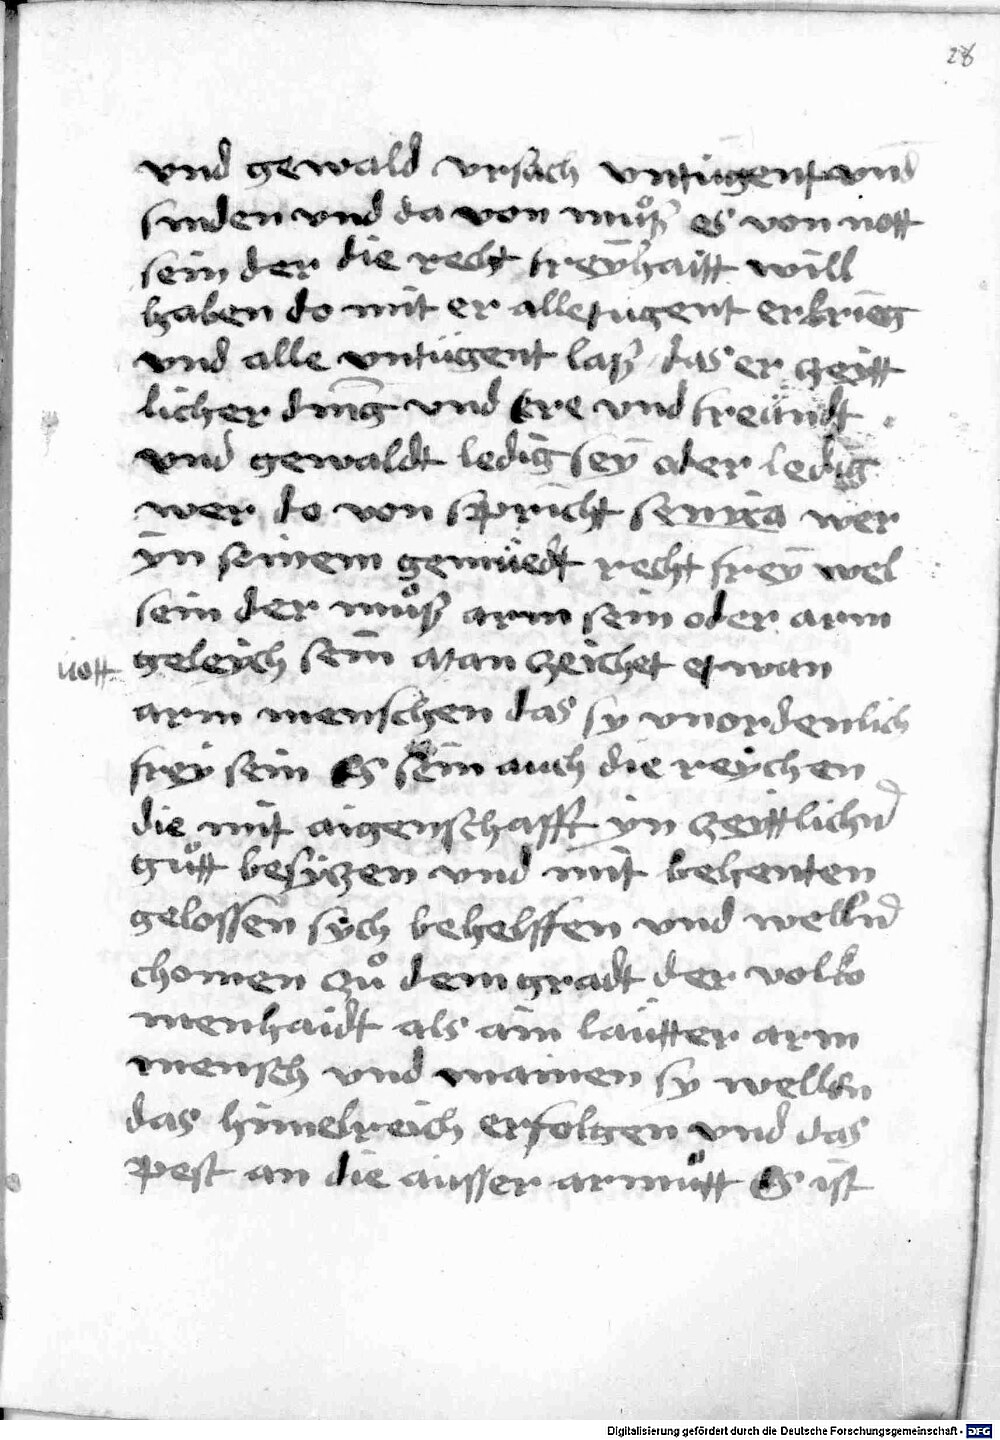 28
vnd gewald vrsach vntugent vnd
sunden vnd da von muͦß es von nott
sein der die recht freyhaitt will
haben do mit er alle tugent erkrieg
vnd alle vntugent laß das er zeitt
licher ding vnd ere vnd freündt
vnd gewaldt ledig sey oder ledig
wer do von spricht seneca wer
yn seinem gemüedt recht frey wel
sein der muͦß arm sein oder arm
geleych sein Man zeichet etwan
nott
arm menschen das sy vnordenlich
frey sein Es sein auch die reychen
die mit aigenschafft yn zeyttlichn
guͦtt besyzen vnd mit behenten
gelossen sych behelffen vnd welln
chomen zuͦ dem gradt der volko
menhaidt als ain lautter arm
mensch vnd mainen sy wellen
das himelreich erfolgen vnd das
pest an die ausser armuͦtt Es ist
Digitalisierung gefördert durch die Deutsche Forschungsgemeinschaft - DFG